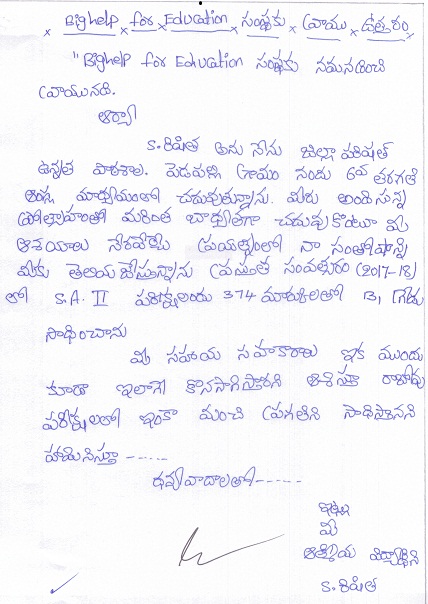 × Bighelp for Education సంస్థకు × వ్రాయు × ఉత్తరం ×
"Bighelp for Education సంస్థకు నమస్కరించి
వ్రాయునది.
ఆర్యా
S. రిషిత అను నేను జిల్లా పరిషత్
ఉన్నత పాఠశాల. పెడవల్లి గ్రామం నందు 6వ తరగతి
ఆంగ్ల మాధ్యమంలో చదువుతున్నాను. మీరు అందిస్తున్న
ప్రోత్సాహంతో మరింత బాధ్యతగా చదువుకొంటూ మీ
ఆశయాలు నెరవేర్చే ప్రయత్నంలో నా సంతోషాన్ని
మీకు తెలియజేస్తున్నాను ప్రస్తుత సంవత్సరం (2017-18)
లో S.A. II పరీక్షలందు 374 మార్కులతో B1 గ్రేడు
సాధించాను
మీ సహాయ సహకారాలు ఇక ముందు
కూడా ఇలాగే కొనసాగిస్తారని ఆశిస్తూ రాబోవు
పరీక్షలలో ఇంకా మంచి ప్రగతిని సాధిస్తానని
హామినిస్తూ -----
ధన్యవాదాలతో -----
ఇట్లు
మీ
ఆత్మీయ విద్యార్థిని
S. రిషిత